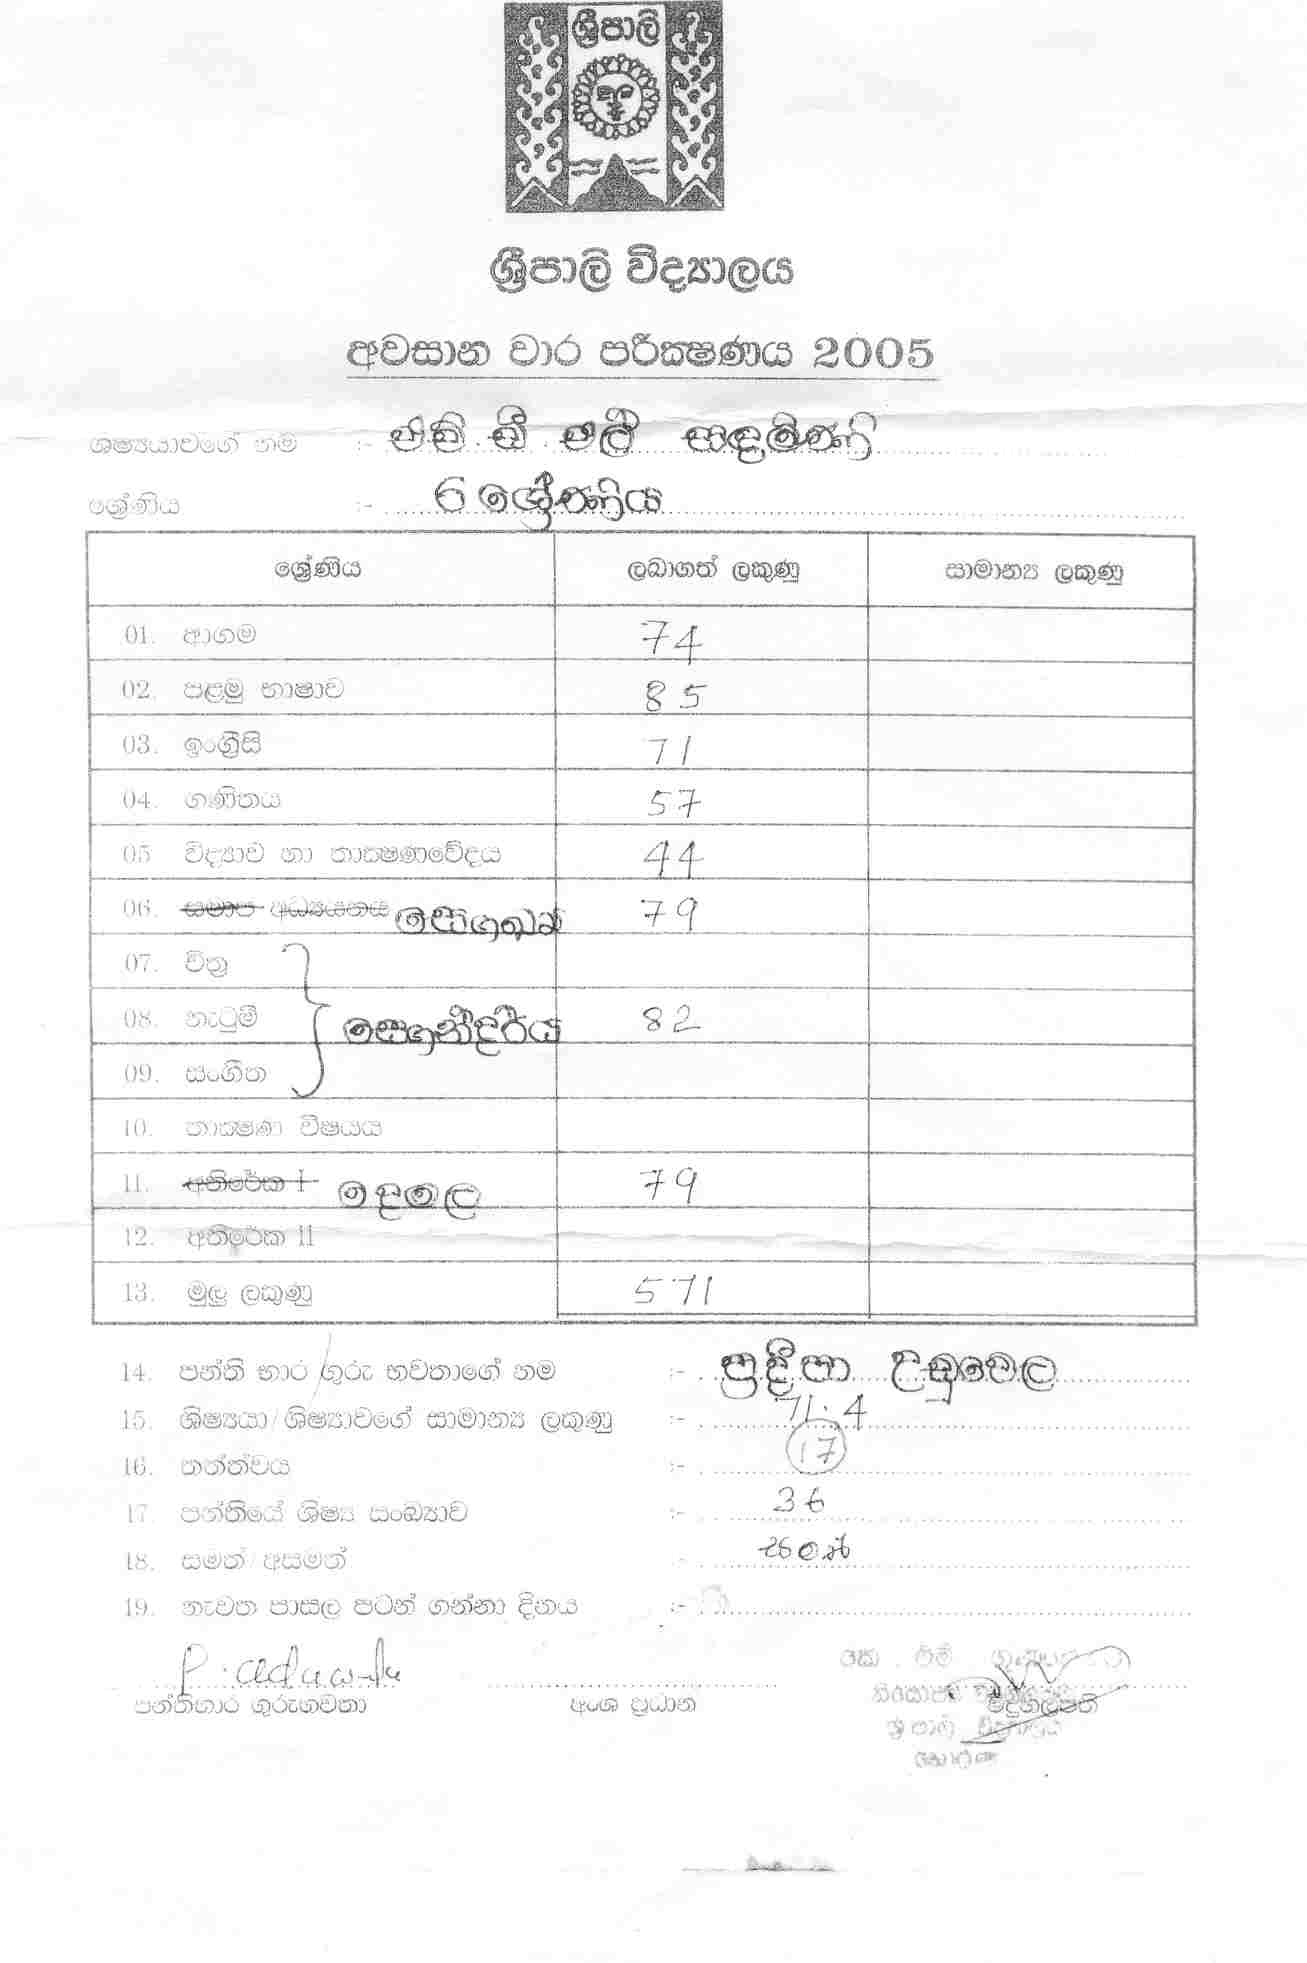 ශ්‍රීපාලි
ශ්‍රීපාලි විද්‍යාලය
අවසාන වාර පරීක්ෂණය 2005
ශිෂ්‍යයාවගේ නම :- එච් . වී . එල් සඳමිණි
ශ්‍රේණිය :- 6 ශ්‍රේණිය
ශ්‍රේණිය ලබාගත් ලකුණු සාමාන්‍ය ලකුණු
01. ආගම 74
02. පළමු භාෂාව 85
03. ඉංග්‍රීසි 71
04. ගණිතය 57
05 විද්‍යාව හා තාක්ෂණවේදය 44
06. සමාජ අධ්‍යයනය සෞඛ්‍යය 79
07. චිත්‍ර
08. නැටුම් සෞන්දර්ය 82
09. සංගීත
10. තාක්ෂණ විෂයය
11. අතිරේක I දෙමළ 79
12. අතිරේක II
13. මුලු ලකුණු 571
14. පන්ති භාර ගුරු භවතාගේ නම :- ප්‍රදීපා උඩුවෙල
15. ශිෂ්‍යයා/ශිෂ්‍යාවගේ සාමාන්‍ය ලකුණු :- 71.4
16. තත්ත්වය :- 17
17. පන්තියේ ශිෂ්‍ය සංඛ්‍යාව :- 36
18. සමත්/අසමත් :- සමත්
19. නැවත පාසල පටන් ගන්නා දිනය :-
පන්තිභාර ගුරුභවතා අංශ ප්‍රධාන විදුහල්පති
ශ්‍රීපාලි විද්‍යාලය
හොරණ